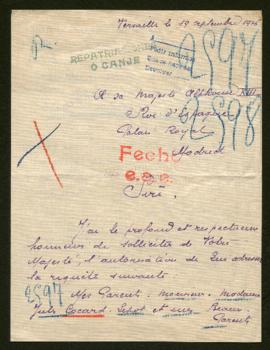 Versailles le 19 septembre 19
REPATRIA
O CANJE
2597
2598
A sa Majesté Alphonse XIII
Roi d'Espagne
Palais Royal
Madrid
Fecho
e.e.e.
Sire,
J'ai le profond et respectueux
honneur de solliciter de Votre
Majesté, l'autorisation de Lui adresser
la requête suivante
2597 Mes Parents, monsieur, Madame
Jules Cocard et
Parents